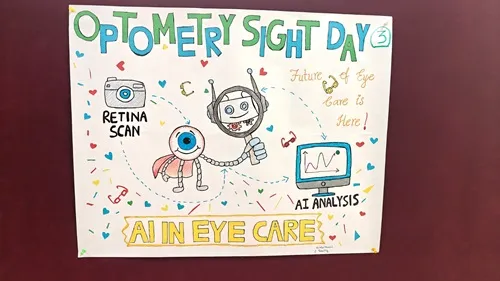 OPTOMETRY SIGHT DAY
3
Future of Eye
Care is
Here!
RETINA
SCAN
AI ANALYSIS
AI IN EYE CARE